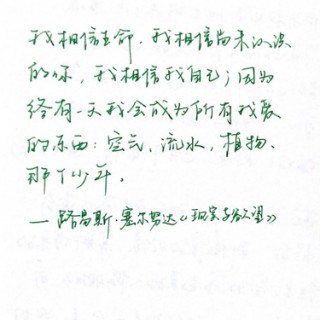 我相信生命，我相信尚未认识
的你，我相信我自己；因为
终有一天我会成为所有我爱
的东西：空气，流水，植物、
那个少年。
—路易斯·塞尔努达《现实与欲望》